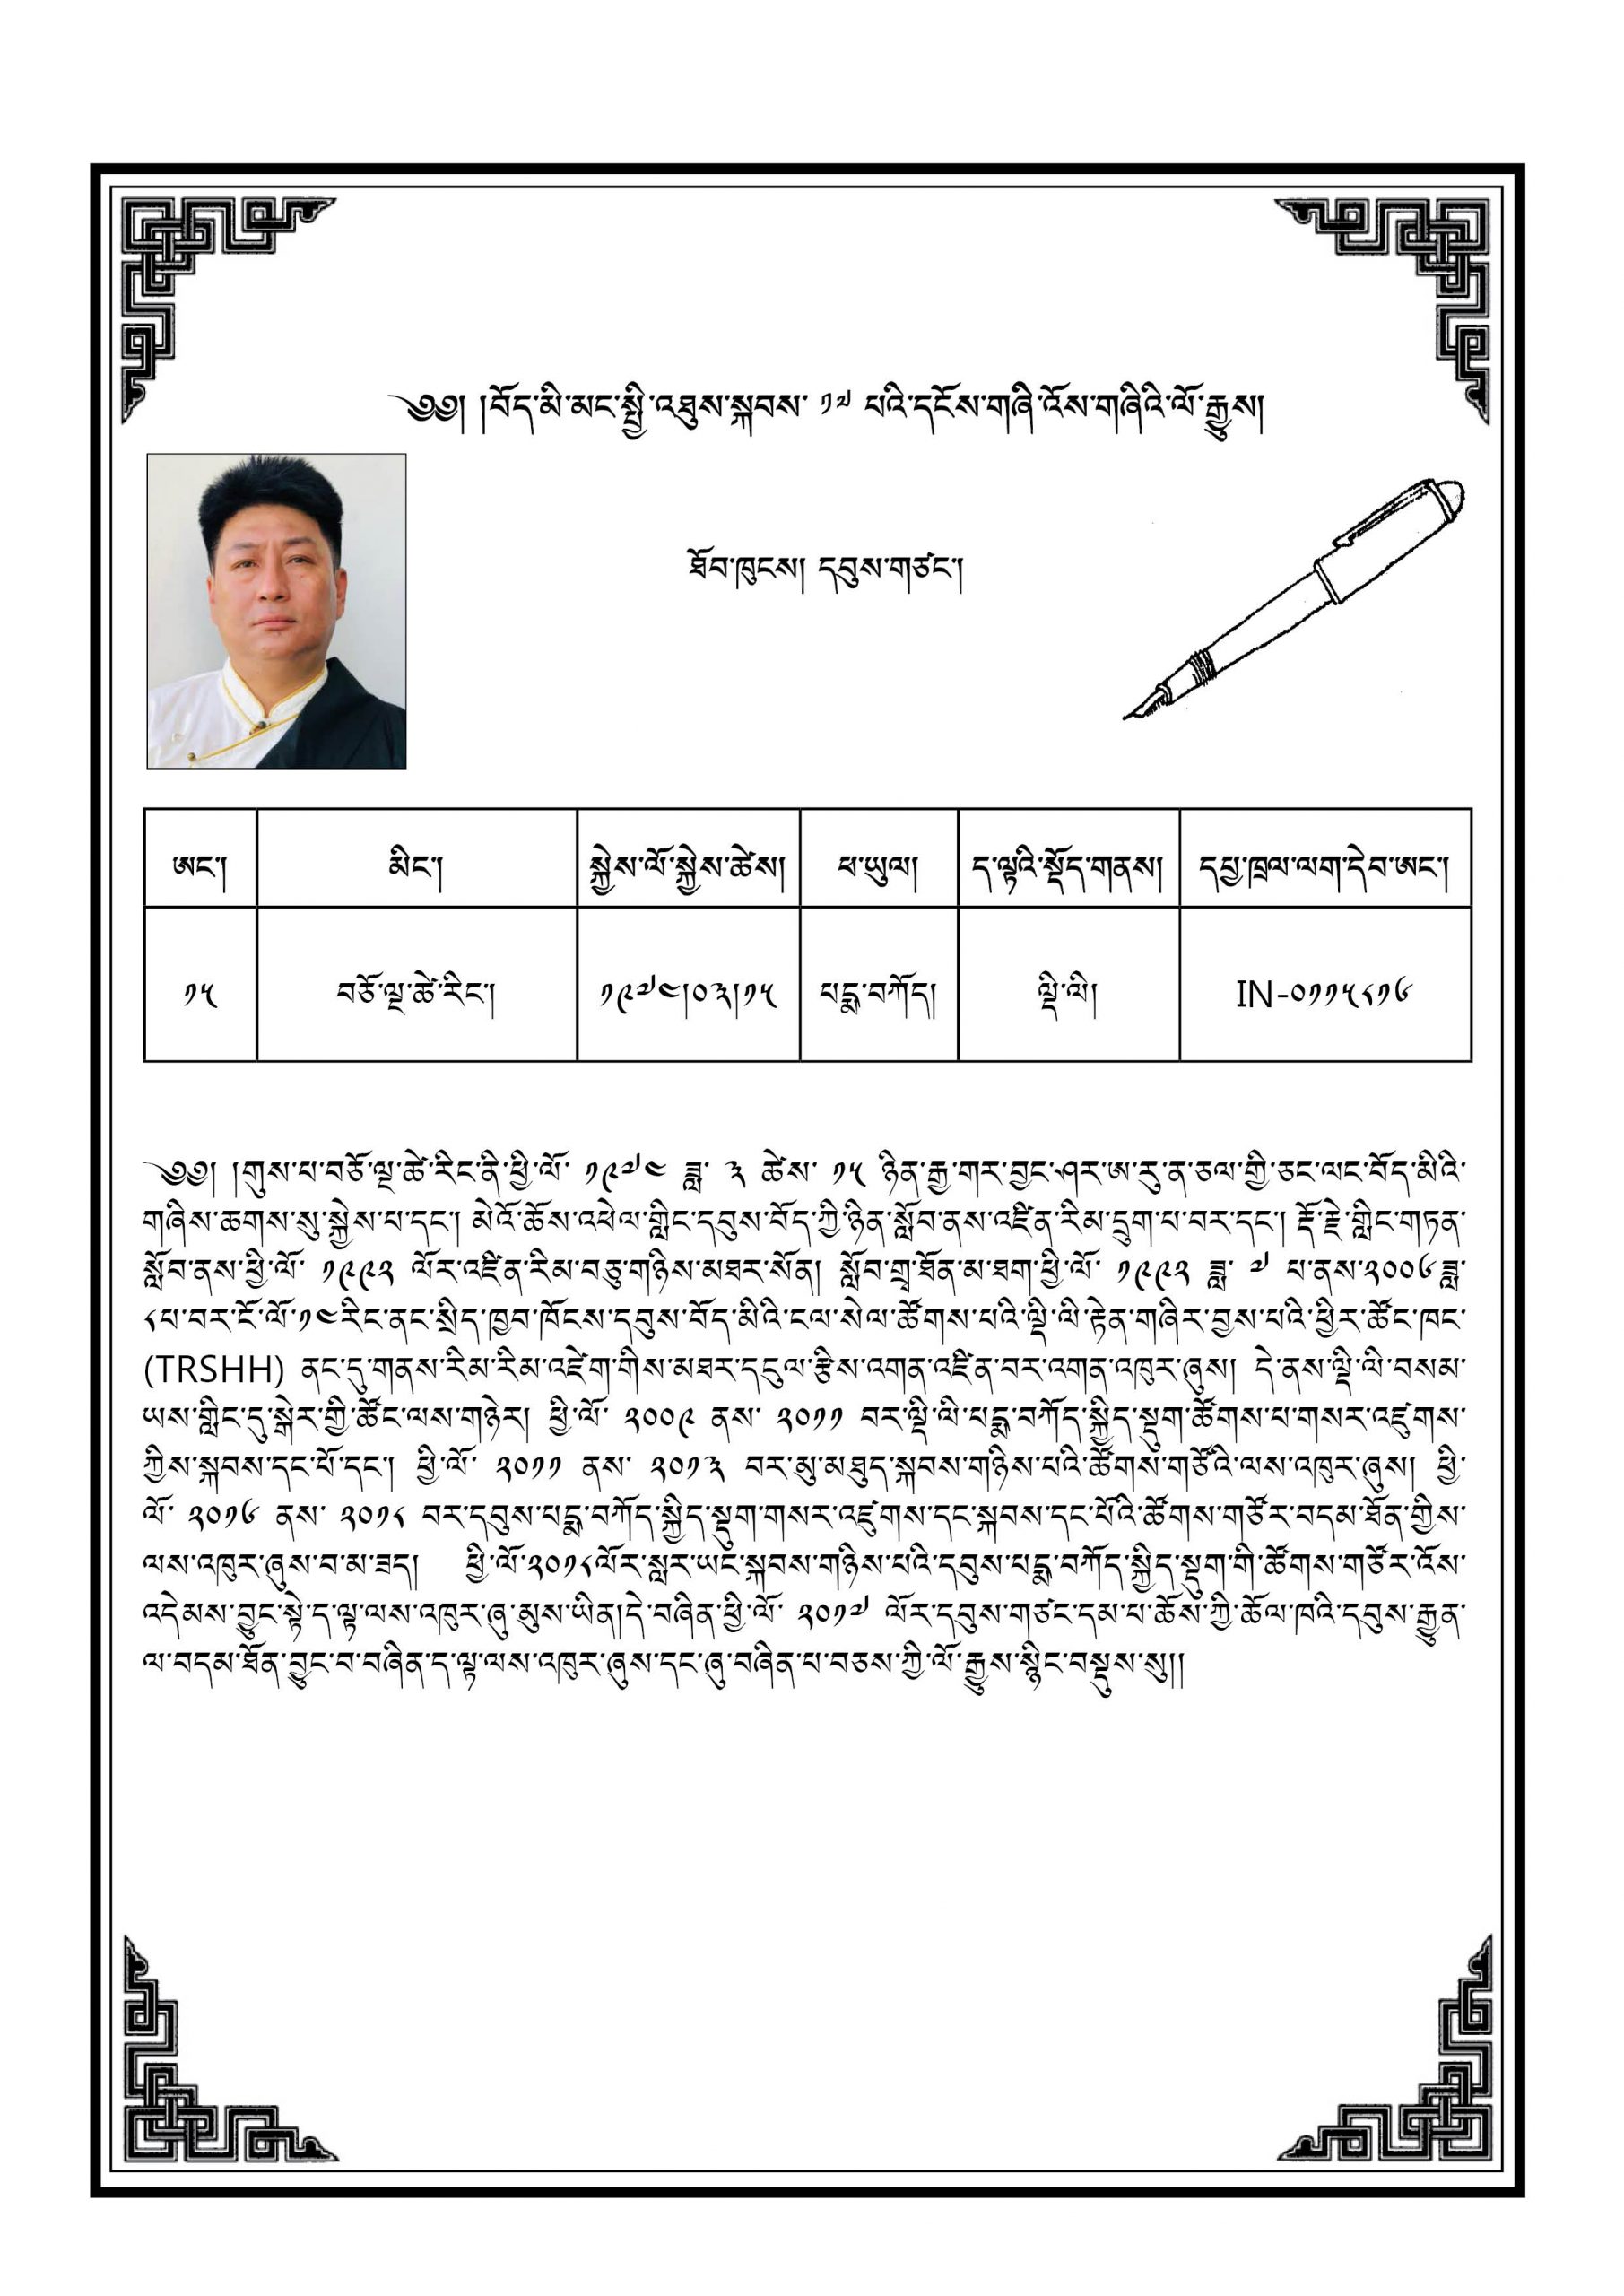 ༄༅། །བོད་མི་མང་སྤྱི་འཐུས་སྐབས་ ༡༧ པའི་དངོས་གཞི་འོས་གཞིའི་ལོ་རྒྱུས།
ཐོབ་ཁུངས། དབུས་གཙང་།
ཨང་། མིང་། སྐྱེས་ལོ་སྐྱེས་ཚེས། ཕ་ཡུལ། ད་ལྟའི་སྡོད་གནས། དཔྱ་ཁྲལ་ལག་དེབ་ཨང་།
༡༥ བཅོ་ལྔ་ཚེ་རིང་། ༡༩༧༤།༠༣།༡༥ པདྨ་བཀོད། ལྡི་ལི། IN-༠༡༡༥༨༡༦
༄༅། །གུས་པ་བཅོ་ལྔ་ཚེ་རིང་ནི་ཕྱི་ལོ་ ༡༩༧༤ ཟླ་ ༣ ཚེས་ ༡༥ ཉིན་རྒྱ་གར་བྱང་ཤར་ཨ་རུ་ན་ཅལ་གྱི་ཅང་ལང་བོད་མིའི་
གཞིས་ཆགས་སུ་སྐྱེས་པ་དང་། མེའོ་ཆོས་འཕེལ་གླིང་དབུས་བོད་ཀྱི་ཉིན་སློབ་ནས་འཛིན་རིམ་དྲུག་པ་བར་དང་། རྡོ་རྗེ་གླིང་གཏན་
སློབ་ནས་ཕྱི་ལོ་ ༡༩༩༢ ལོར་འཛིན་རིམ་བཅུ་གཉིས་མཐར་སོན། སློབ་གྲྭ་ཐོན་མ་ཐག་ཕྱི་ལོ་ ༡༩༩༢ ཟླ་ ༧ པ་ནས་༢༠༠༦ཟླ་
༨པ་བར་ངོ་ལོ་༡༤རིང་ནང་སྲིད་ཁྱབ་ཁོངས་དབུས་བོད་མིའི་ངལ་སེལ་ཚོགས་པའི་ལྡི་ལི་རྟེན་གཞིར་བྱས་པའི་ཕྱིར་ཚོང་ཁང་
(TRSHH) ནང་དུ་གནས་རིམ་རིམ་འཛེག་གིས་མཐར་དངུལ་རྩིས་འགན་འཛིན་བར་འགན་འཁུར་ཞུས། དེ་ནས་ལྡི་ལི་བསམ་
ཡས་གླིང་དུ་སྒེར་གྱི་ཚོང་ལས་གཉེར། ཕྱི་ལོ་ ༢༠༠༩ ནས་ ༢༠༡༡ བར་ལྡི་ལི་པདྨ་བཀོད་སྐྱིད་སྡུག་ཚོགས་པ་གསར་འཛུགས་
ཀྱིས་སྐབས་དང་པོ་དང་། ཕྱི་ལོ་ ༢༠༡༡ ནས་ ༢༠༡༣ བར་མུ་མཐུད་སྐབས་གཉིས་པའི་ཚོགས་གཙོའི་ལས་འཁུར་ཞུས། ཕྱི་
ལོ་ ༢༠༡༦ ནས་ ༢༠༡༨ བར་དབུས་པདྨ་བཀོད་སྐྱིད་སྡུག་གསར་འཛུགས་དང་སྐབས་དང་པོའི་ཚོགས་གཙོར་བདམ་ཐོན་གྱིས་
ལས་འཁུར་ཞུས་བ་མ་ཟད། ཕྱི་ལོ་༢༠༡༨ལོར་སླར་ཡང་སྐབས་གཉིས་པའི་དབུས་པདྨ་བཀོད་སྐྱིད་སྡུག་གི་ཚོགས་གཙོར་འོས་
འདེམས་བྱུང་སྟེ་ད་ལྟ་ལས་འཁུར་ཞུ་མུས་ཡིན།དེ་བཞིན་ཕྱི་ལོ་ ༢༠༡༧ ལོར་དབུས་གཙང་དམ་པ་ཆོས་ཀྱི་ཆོལ་ཁའི་དབུས་རྒྱུན་
ལ་བདམ་ཐོན་བྱུང་བ་བཞིན་ད་ལྟ་ལས་འཁུར་ཞུས་དང་ཞུ་བཞིན་པ་བཅས་ཀྱི་ལོ་རྒྱུས་སྙིང་བསྡུས་སུ།།